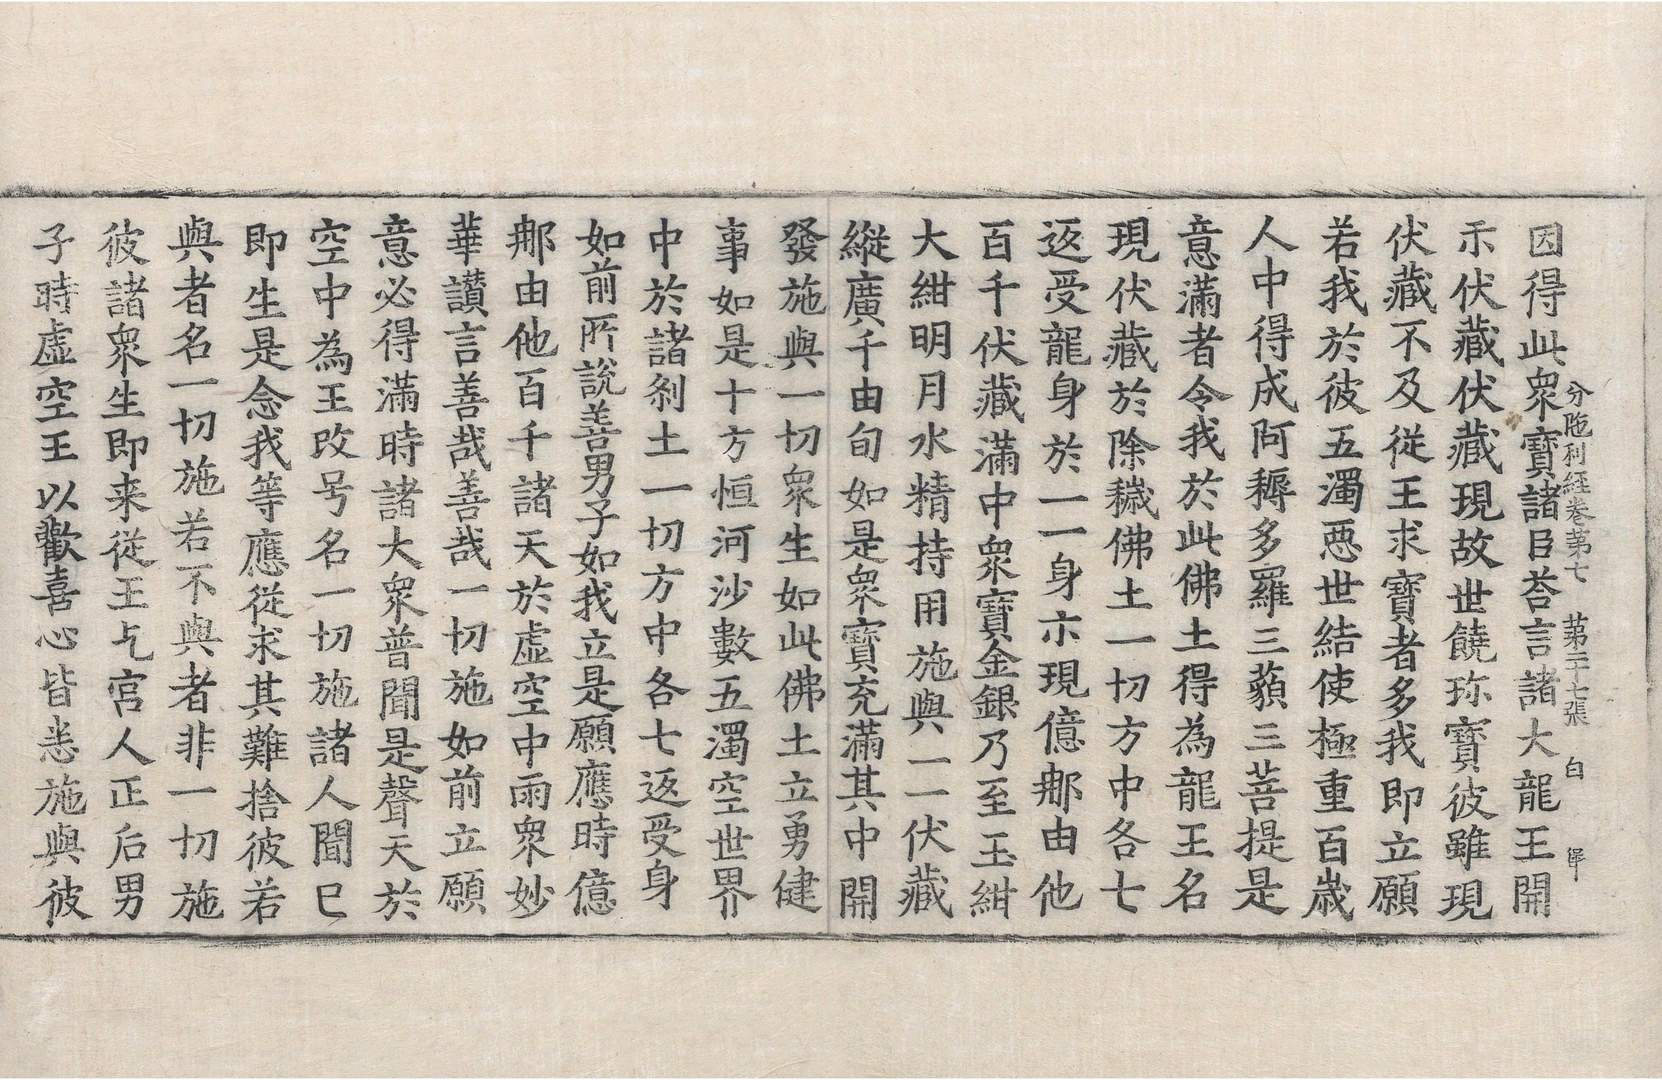 因得此衆寶諸臣荅言諸大龍王開
分陁利經卷第七　第二十七張　白　單
示伏藏伏藏現故世饒珎寶彼雖現
伏藏不及從王求寶者多我即立願
若我於彼五濁惡世結使極重百歲
人中得成阿耨多羅三藐三菩提是
意滿者令我於此佛土得為龍王名
現伏藏於除穢佛土一切方中各七
返受龍身於一一身亦現億那由他
百千伏藏滿中衆寶金銀乃至玉紺
大紺明月水精持用施與一一伏藏
縱廣千由旬如是衆寶充滿其中開
發施與一切衆生如此佛土立勇健
事如是十方恒河沙數五濁空世界
中於諸刹土一切方中各七返受身
如前所說善男子如我立是願應時億
那由他百千諸天於虛空中雨衆妙
華讃言善哉善哉一切施如前立願
意必得滿時諸大衆普聞是聲天於
空中為王改号名一切施諸人聞已
即生是念我等應從求其難捨彼若
與者名一切施若不與者非一切施
彼諸衆生即来從王乞宮人正后男
子時虛空王以歡喜心皆悉施與彼